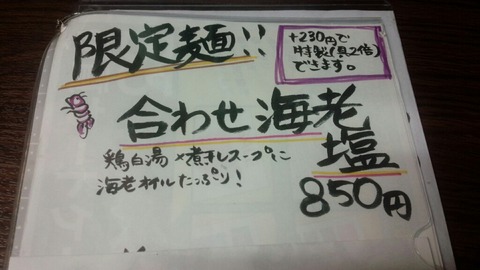 限定麺!!
+230円で
特製(具2倍)
できます。
合わせ海老
塩
鶏白湯×煮干しスープに
海老オイルたっぷり!
850円